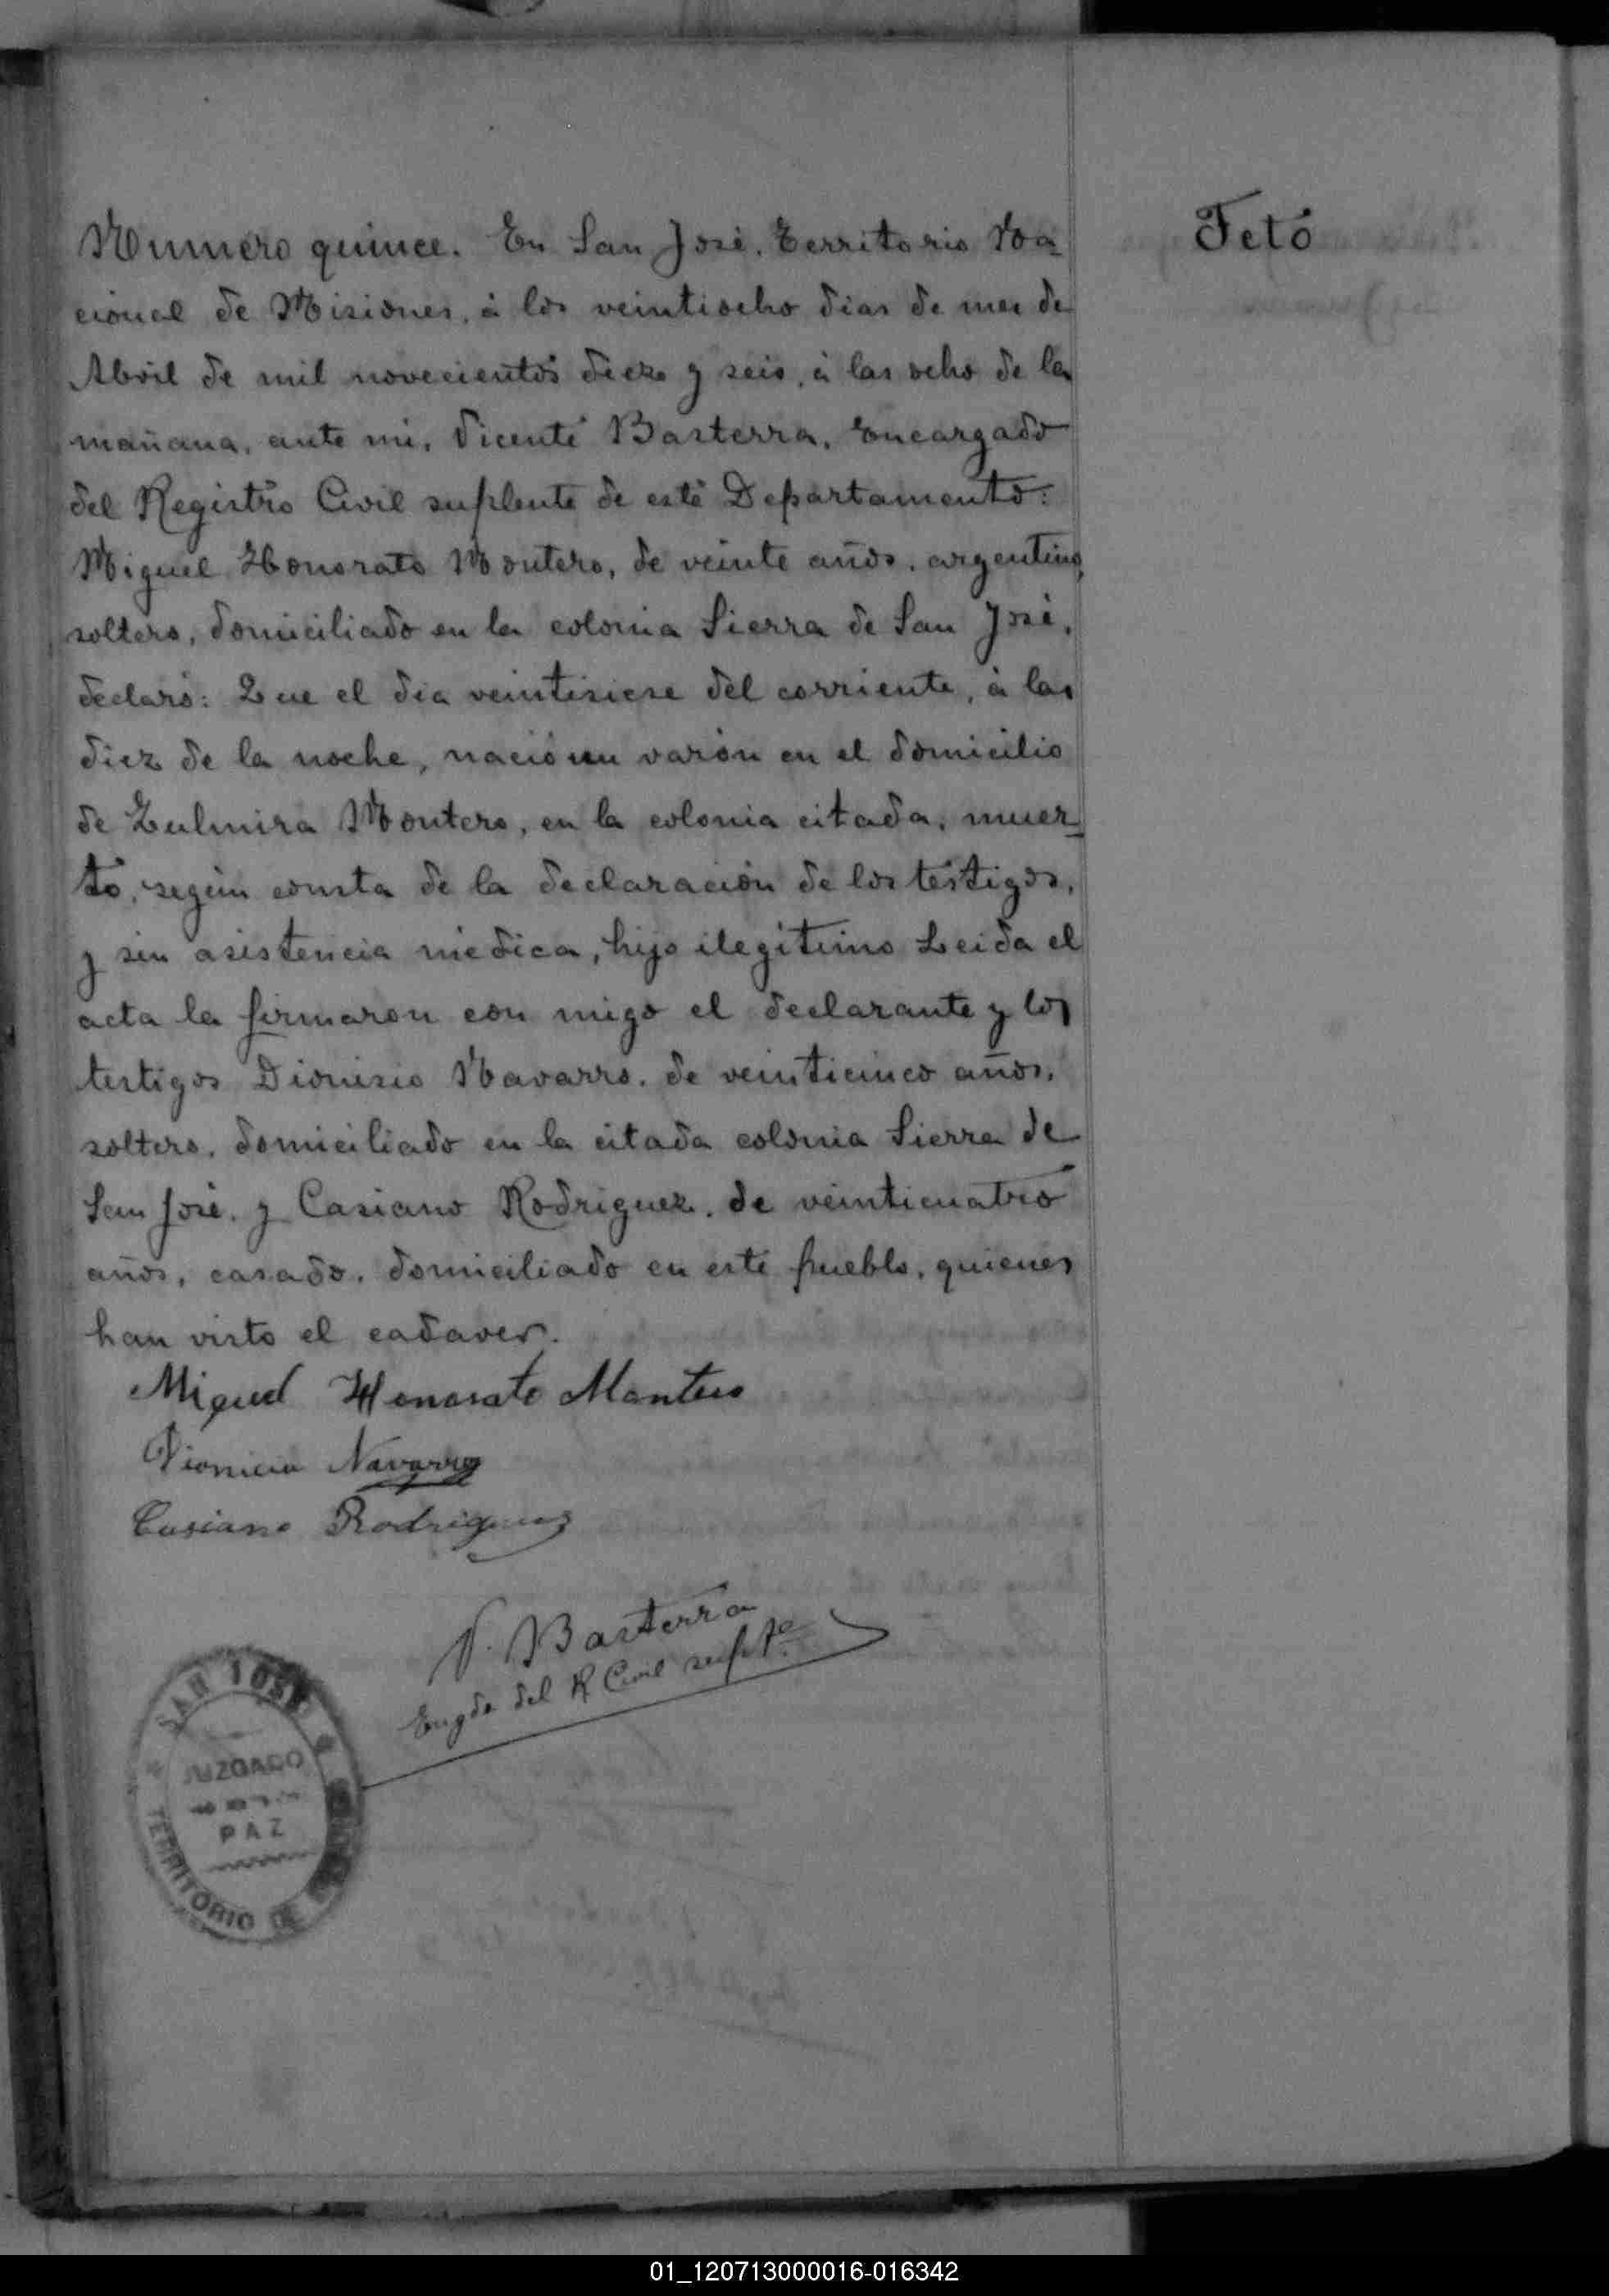 Numero quince. En San José, Territorio Na-
cional de Misiones, á los veintiocho dias de mes de
Abril de mil novecientos diez y seis, á las ocho de la
mañana, ante mi, Vicente Basterra, Encargado
del Registro Civil suplente de este Departamento:
Miguel Honorato Montero, de veinte años, argentino,
soltero, domiciliado en la colonia Sierra de San José,
declaró: Que el dia veintisiese del corriente, á las
diez de la noche, nació un varón en el domicilio
de Zulmira Montero, en la colonia citada, muer-
to, según consta de la declaración de los testigos,
y sin asistencia médica, hijo ilegítimo Leida el
acta la firmaron con migo el declarante y los
testigos Dionisio Navarro, de veinticinco años,
soltero, domiciliado en la citada colonia Sierra de
San José, y Casiano Rodriguez, de veinticuatro
años, casado, domiciliado en este pueblo, quienes
han visto el cadaver.
Miguel Honorato Montero
Dionicio Navarro
Casiano Rodriguez
V. Basterra
Engdo del R Civil suplte
Fetó
SAN JOSÉ
JUZGADO
PAZ
TERRITORIO DE
01_120713000016-016342